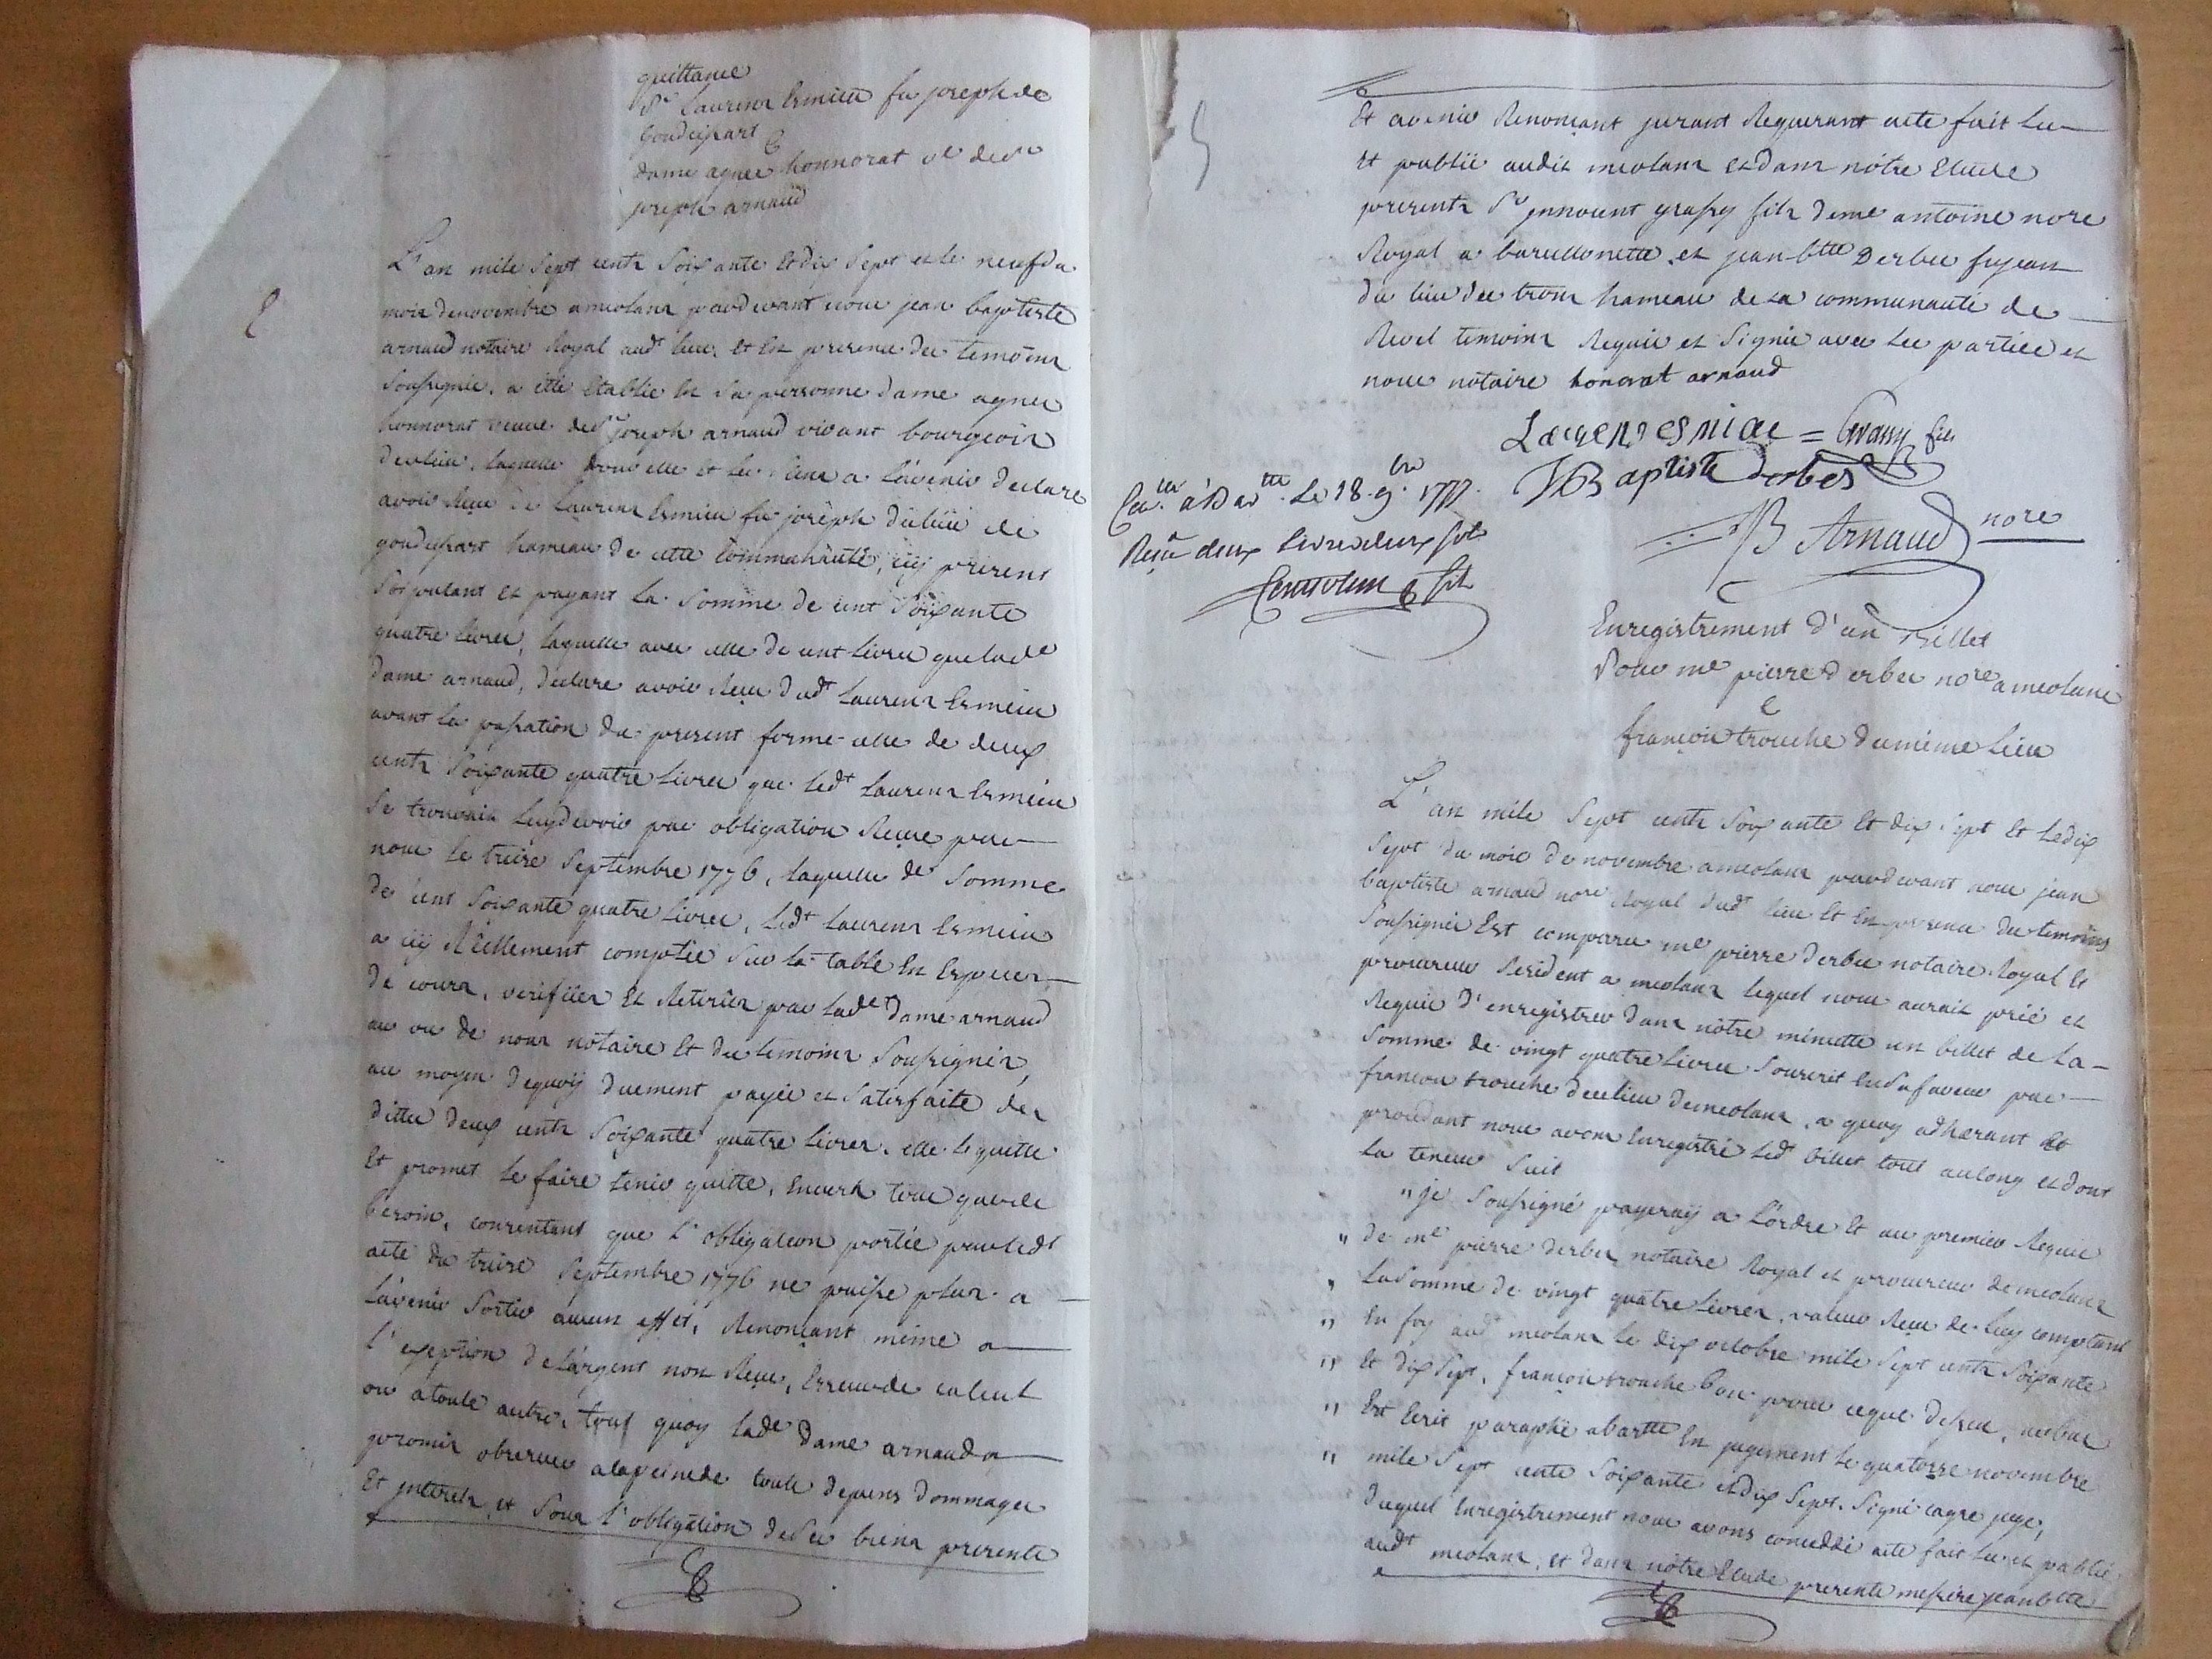 quittance
Sr Laurens Ermieu fu joseph de
goudeisart
C
dame agnes honnorat ve de sr
joseph arnaud
L'an mile sept cents soixante et dix sept et le neuf du
mois de novembre a meolans pardevant nous jean baptiste
arnaud notaire Royal audt lieu et en presence des temoins
soussignés, a eté etablie en sa personne dame agnes
honnorat veuve de sr joseph arnaud vivant bourgeois
de ce lieu, laquelle pour elle et les siens a l'avenir declare
avoir Reçu de Laurens Ermieu fu joseph du lieu de
goudeisart hameau de cette communauté, icy present
stipulant et payant la somme de cent soixante
quatre livres, laquelle avec celle de cent livres que lade
dame arnaud, declare avoir Reçu dudt Laurens Ermieu
avant la passation du present forme celle de deux
cents soixante quatre livres que ledt Laurens Ermieu
se trouvait luy devoir par obligation Reçue par
nous le treize septembre 1776, laquelle de somme
de cent soixante quatre livres, ledt Laurens Ermieu
a icy Réellement comptée sur la table en Espèces
de cours, verifiées et Retirées par lade dame arnaud
au vu de nous notaire et des temoins soussignés,
au moyen de quoy duement payée et satisfaite des
dittes deux cents soixante quatre livres, elle le quitte
et promet le faire tenir quitte, envers tous que de
besoin, consentant que l'obligation portée par ledt
acte du treize septembre 1776 ne puisse plus a
l'avenir sortir aucun effet, Renonçant même a
l'exeption de l'argent non Reçu, Erreur de calcul
ou a toute autre, tout quoy lade dame arnaud a
promis observer a la peine de tous depens dommages
et interets, et sous l'obligation de ses biens presents
Et avenir Renonçant jurant Requerant acte fait lu
et publié audit meolans et dans nôtre Etude
presents Sr jnnocent grassy fils de me antoine nore
Royal a barcellonette, et jean btte Derbes fu jean
du lieu des trons hameau de la communauté de
Revel temoins Requis et signés avec les parties et
nous notaire honorat arnaud
Laurens esmiae = Grassy fils
JB aptiste derbes
JB Arnaud nore
Con.llé à Bar.tte Le 18 9.bre 1777.
Reçu deux livres deux sols
fils
Enregistrement d'un Billet
Pour me pierre derbes nore a meolans
C
françois trouche du même lieu
L'an mile sept cents soixante et dix sept et le dix
sept du mois de novembre a meolans pardevant nous jean
baptiste arnaud nore Royal dudt lieu et en presence des temoins
soussignés Est comparu me pierre derbes notaire Royal et
procureur Resident a meolans lequel nous aurait prié et
Requis d'enregistrer dans nôtre minutte un billet de la
somme de vingt quatre livres souscrit en sa faveur par
francois trouche de ce lieu de meolans, a quoy adherant et
procedant nous avons Enregistré ledt billet tout au long et dont
la teneur suit
" je soussigné payeray a l'ordre et au premier Requis
" de me pierre derbes notaire Royal et procureur de meolans
" la somme de vingt quatre livres, valeur Reçue de luy comptant
" en foy audt meolans le dix octobre mile sept cents soixante
" et dix sept, françois trouche bon pour ce que dessus, au bas
" Est Ecrit paraphé a bartte en jugement le quatorze novembre
" mile sept cents soixante et dix sept. signé cagre juge,
duquel Enregistrement nous avons conceddé acte fait lu et publié
audt meolans, et dans nôtre Etude presents messire jean btte